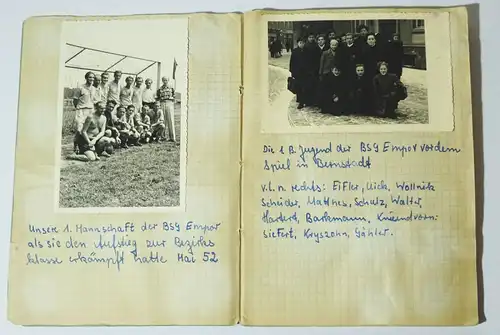 Unsere 1. Mannschaft der BSG Empor
als sie den Aufstieg zur Bezirks
klasse erkämpft hatte Mai 52
Die 1 B. Jugend der BSG Empor vor dem
Spiel in Bernstadt
v.l.n rechts: Eifler, Wollnik
Scheider, Matthes, Schulz, Walter,
Hartert, Barkmann, Knieend vorn:
Siefert, Kryszohn, Gähler.